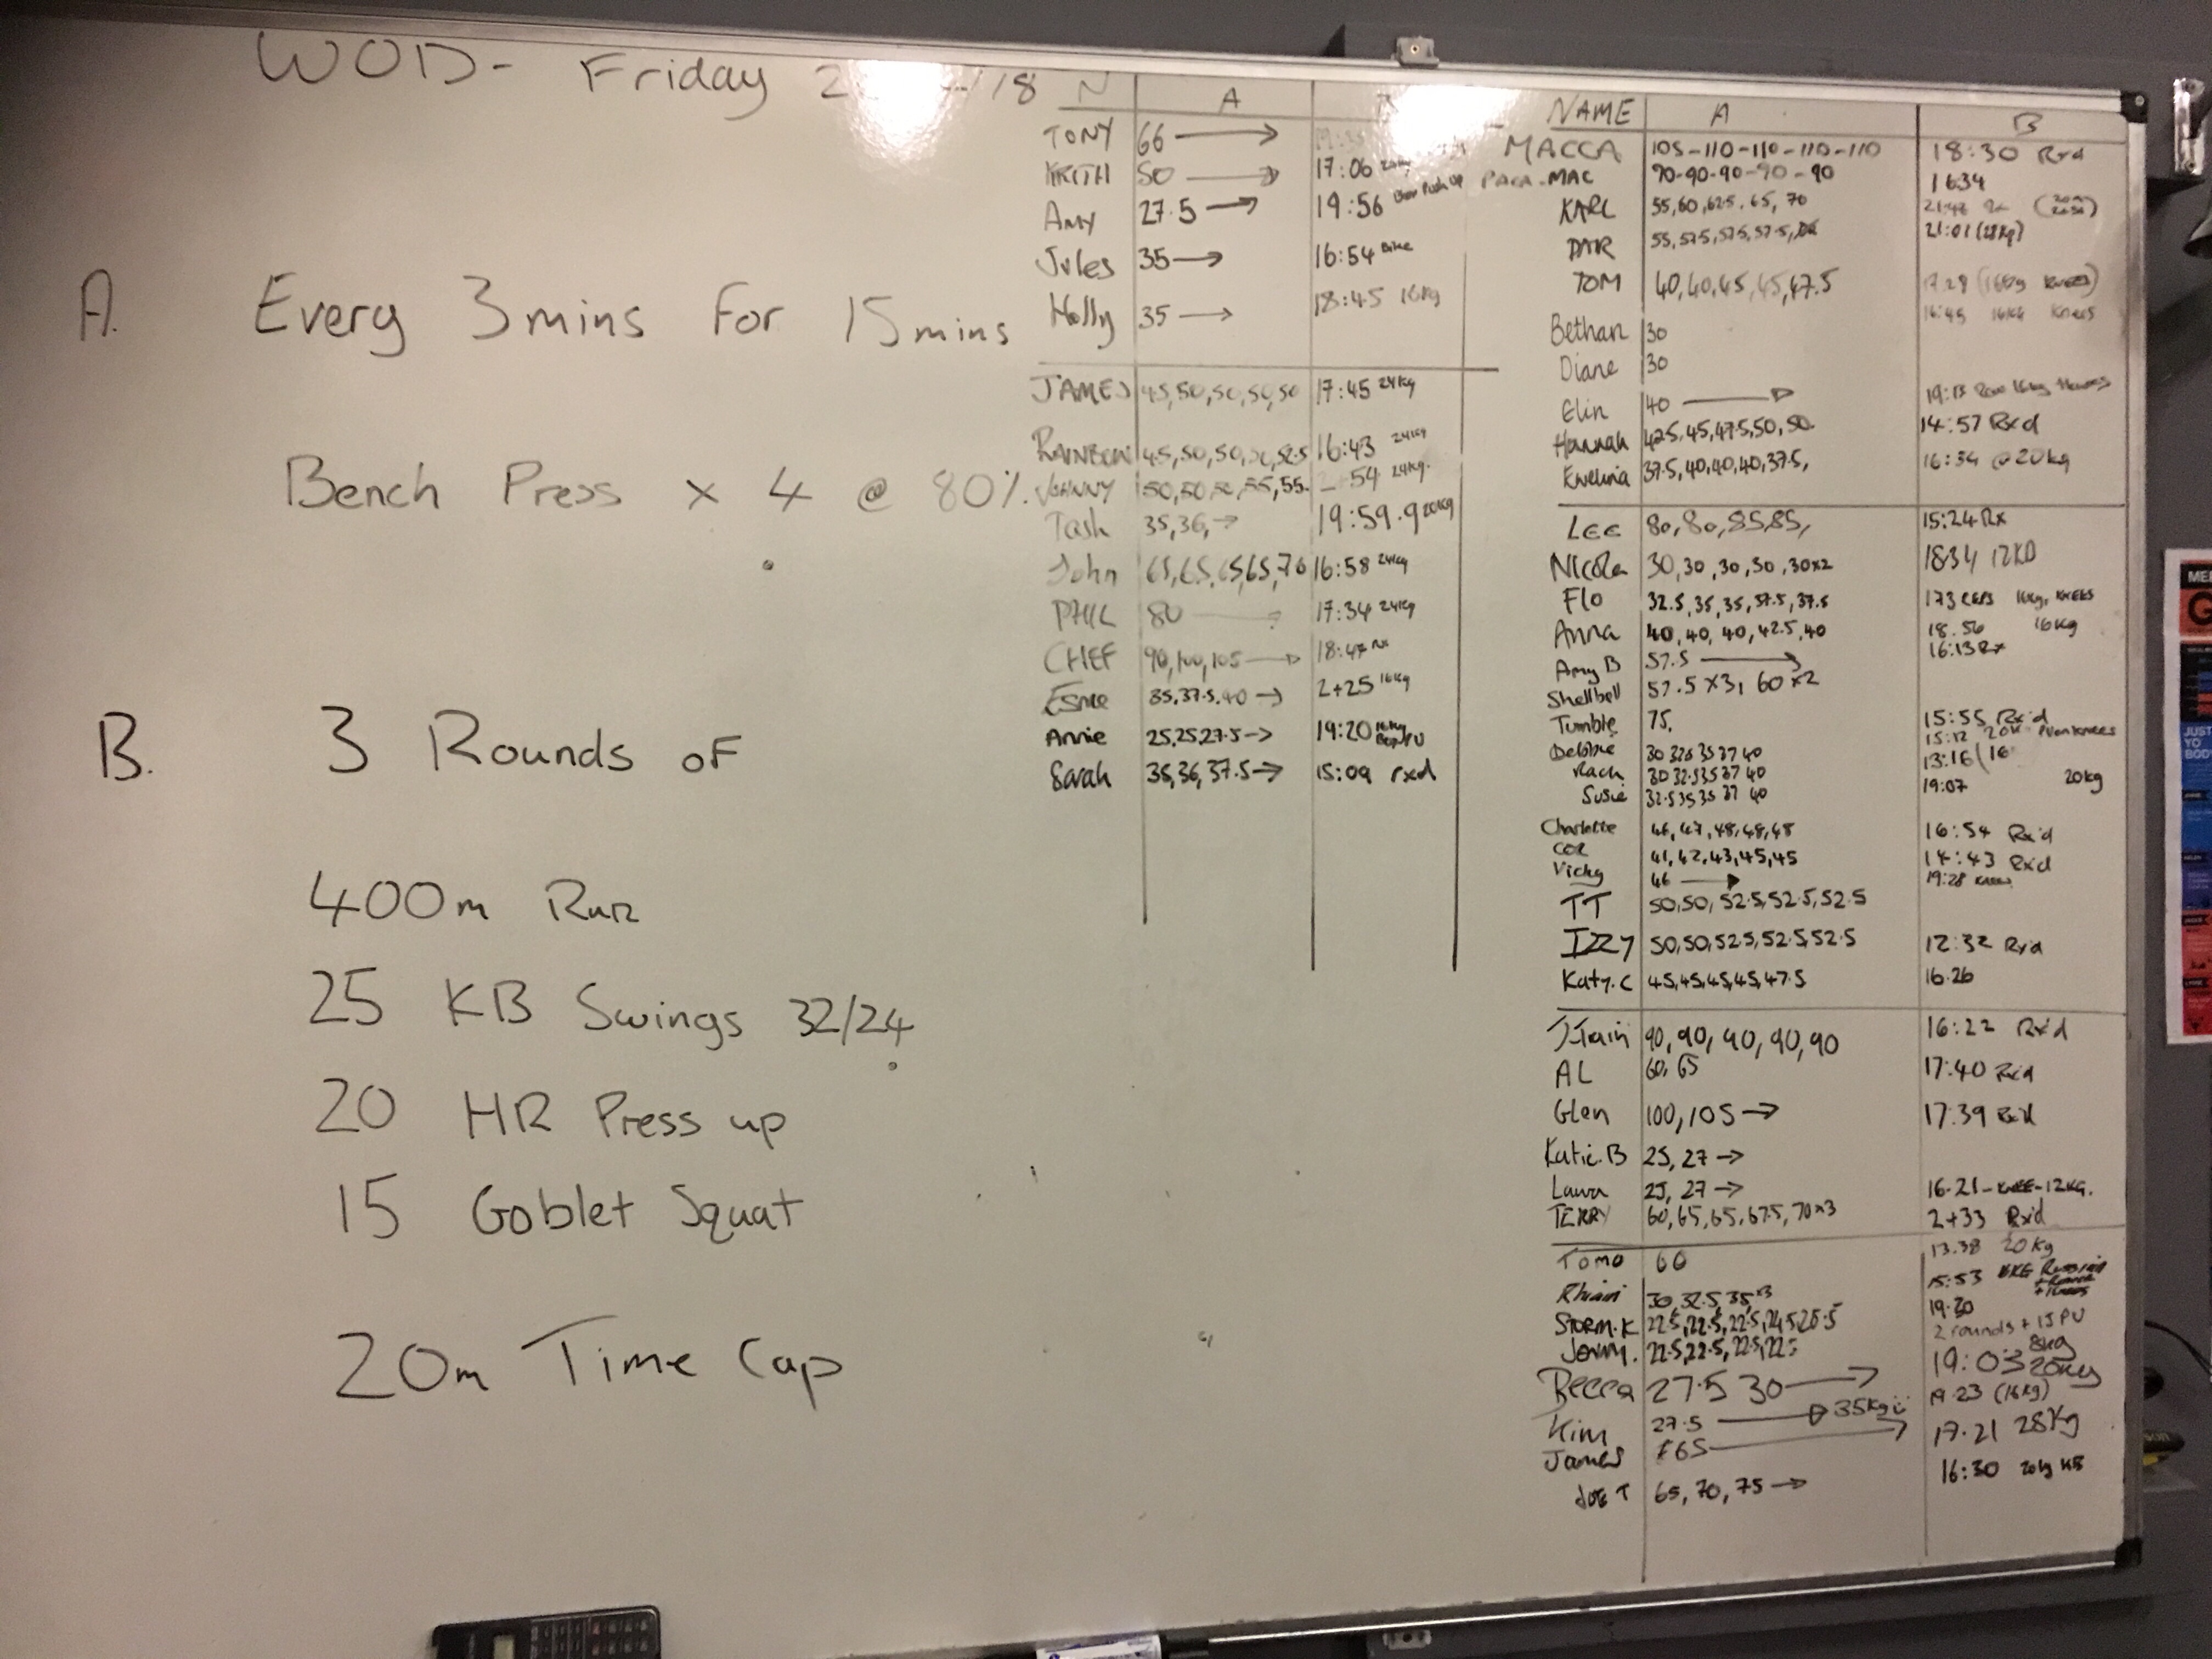 WOD- Friday 18
A. Every 3mins For 15mins
Bench Press x 4 @ 80%
B. 3 Rounds of
400m Run
25 KB Swings 32/24
20 HR Press up
15 Goblet Squat
20m Time Cap
N A
TONY 66 →
KEITH 50 → 17:06
Amy 27.5 → 19:56 Push up
Jules 35 → 16:54 Bike
Holly 35 → 18:45 16kg
JAMES 45,50,50,50,50 17:45 24kg
RAINBOW 45,50,50,50,52.5 16:43 24kg
JOHNNY 50,50,55,55 54 24kg.
Tash 35,36,→ 19:59.9 20kg
John 65,65,65,65,70 16:58 24kg
PHIL 80 → 17:34 24kg
CHEF 90,100,105 → 18:47 Rx
Esme 35,37.5,40 → 2+25 16kg
Annie 25,25,27.5-> 19:20 16kg PU
Sarah 35,36,37.5→ 15:09 rxd
NAME A B
MACCA 105-110-110-110-110 18:30 Rxd
PACA-MAC 90-90-90-90-90 1634
KARL 55,60,62.5,65,70
DAR 55,57.5,57.5,57.5, 21:01 (28kg)
TOM 40,40,45,45,47.5 (16kg knees)
Bethan 30 16:45 16kg knees
Diane 30
Elin 40 → 19:13 16kg
Hannah 42.5,45,47.5,50,50. 14:57 Rxd
Ewelina 37.5,40,40,40,37.5, 16:34 @ 20kg
LEE 80,80,85,85, 15:24 Rx
Nicola 30,30,30,30,30x2 1834
Flo 32.5,35,35,37.5,37.5 173 REPS 16kg, KNEES
Anna 40,40,40,42.5,40 18.56 16kg
Amy B 57.5 → 16:13 Rx
Shellbell 57.5 x3, 60 x2
Tumble 75, 15:55 Rx'd
Debbie 30 32.5 35 37 40 15:12 20K knees
Rach 30 32.5 35 37 40 13:16 (16
Susie 32.5 35 35 37 40 19:07 20kg
Charlotte 46,47,48,48,48 16:54 Rx'd
COR 41,42,43,45,45 14:43 Rxd
Vicky 46 → 19:28 knees
TT 50,50,52.5,52.5,52.5
IZZY 50,50,52.5,52.5,52.5 12:32 Rxd
Katy.C 45,45,45,45,47.5 16.26
J-Train 90,90,90,90,90 16:22 Rx'd
AL 60,65 17:40 Rxd
Glen 100,105→ 17.39 Rxd
Katie.B 25,27→
Laura 25,27→ 16-21-KNEE-12KG.
TERRY 60,65,65,67.5,70x3 2+33 Rx'd
Tomo 60 13.38 20kg
Rhian 30,32.5,35x3 15:53 Russian
STORM.K 22.5,22.5,22.5,24.5,25.5 19.20
Jenny. 22.5,22.5,22.5,22.5 2 rounds + 15 PU 8kg
Becca 27.5 30 → 19:03 20kg
Kim 27.5 → 35kg 19.23 (16kg)
James 65 → 17.21 28Kg
JOE T 65,70,75→ 16:30 20kg KB